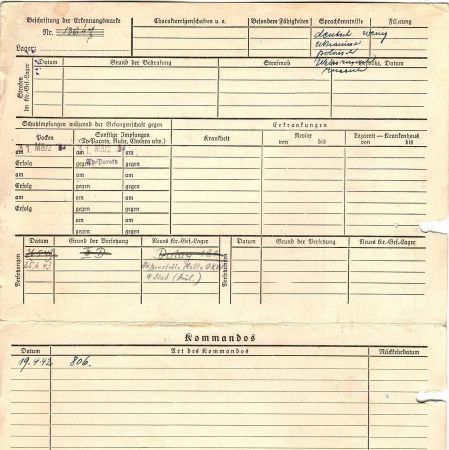 Beschriftung der Erkennungsmarke
Charaktereigenschaften u. a.
Besondere Fähigkeiten
Sprachkenntnisse
Führung
Nr.
Lager:
deutsch wenig
ukrainisch
polnisch
Strafen im Kr.-Gef.-Lager
Datum
Grund der Bestrafung
Strafmaß
Datum
Schutzimpfungen während der Gefangenschaft gegen
Erkrankungen
Pocken
Sonstige Impfungen
(Ty-Paraty, Ruhr, Cholera usw.)
Krankheit
Revier
von bis
Lazarett — Krankenhaus
von bis
am
am
am
Erfolg
gegen
Ty-Paraty
gegen
am
am
am
Erfolg
gegen
gegen
am
am
am
Erfolg
gegen
gegen
am
am
gegen
gegen
am
am
gegen
gegen
Versetzungen
Datum
Grund der Versetzung
Neues Kr.-Gef.-Lager
Versetzungen
Datum
Grund der Versetzung
Neues Kr.-Gef.-Lager
Kommandos
Datum
Art des Kommandos
Rückkehrdatum
19.4.42
806.